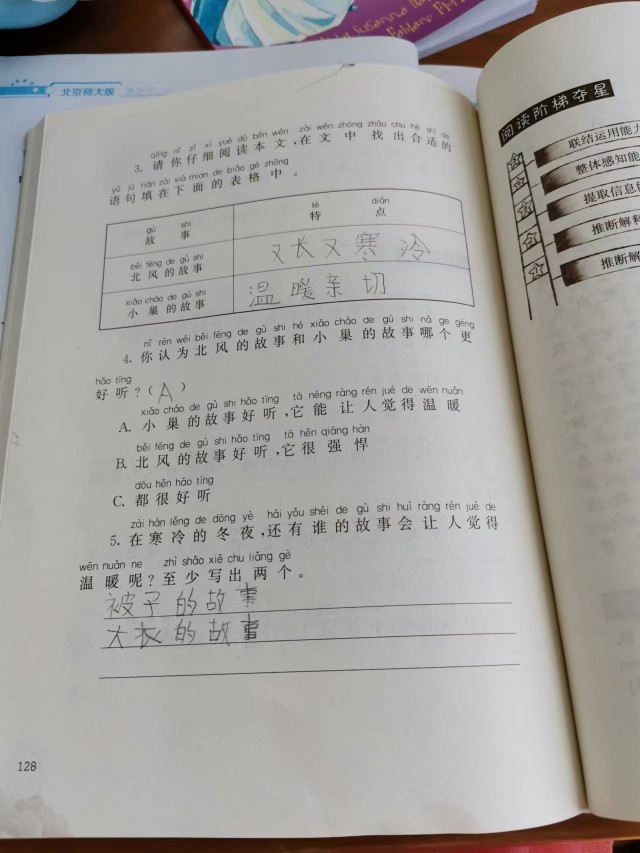 Susanna
北京师大版
qǐng nǐ zǐ xì yuè dú běn wén zài wén zhōng zhǎo chu hé shì de
3. 请你仔细阅读本文,在文中找出合适的
yǔ jù tián zài xià mian de biǎo gé zhōng
语句填在下面的表格中。
gù shi tè diǎn
故事 特点
běi fēng de gù shi
北风的故事 又长又寒冷
xiǎo cháo de gù shi
小巢的故事 温暖亲切
nǐ rèn wéi běi fēng de gù shi hé xiǎo cháo de gù shi nǎ ge gèng
4. 你认为北风的故事和小巢的故事哪个更
hǎo tīng
好听?(A)
xiǎo cháo de gù shi hǎo tīng tā néng ràng rén jué de wēn nuǎn
A. 小巢的故事好听,它能让人觉得温暖
běi fēng de gù shi hǎo tīng tā hěn qiáng hàn
B. 北风的故事好听,它很强悍
dōu hěn hǎo tīng
C. 都很好听
zài hán lěng de dōng yè hái yǒu shéi de gù shi huì ràng rén jué de
5. 在寒冷的冬夜,还有谁的故事会让人觉得
wēn nuǎn ne zhì shǎo xiě chu liǎng gè
温暖呢?至少写出两个。
被子的故事
大衣的故事
128
阅读阶梯夺星
联结运用能力
整体感知能
提取信息
推断解释
推断解